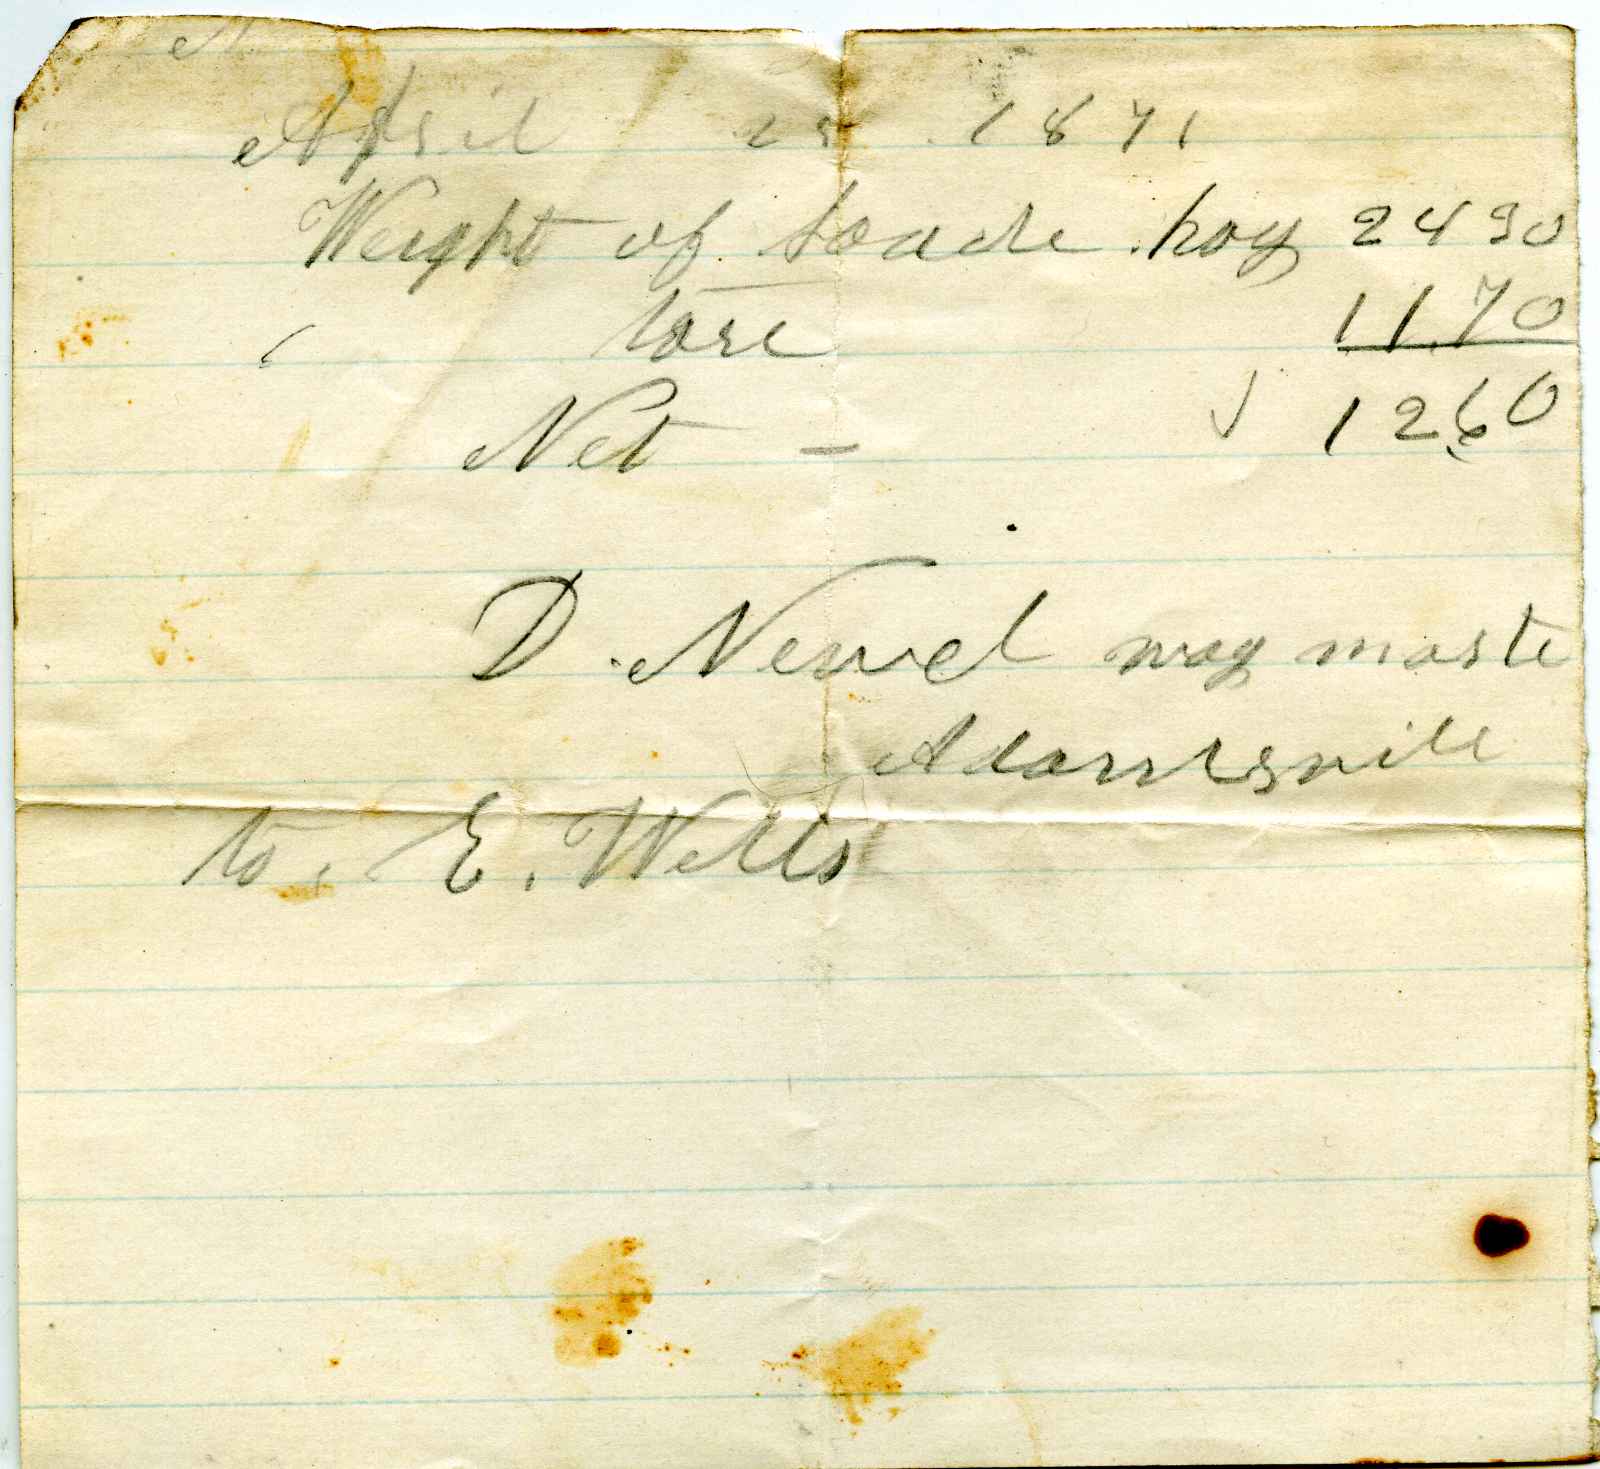 April 1871
Weight of loade hay 2430
tare 1170
Net – √ 1260
D. Newel way maste
Adamsvill
to. E. Wells